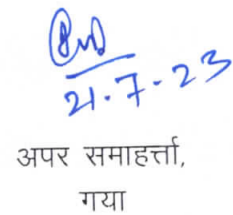 21.7.23
अपर समाहर्त्ता,
गया